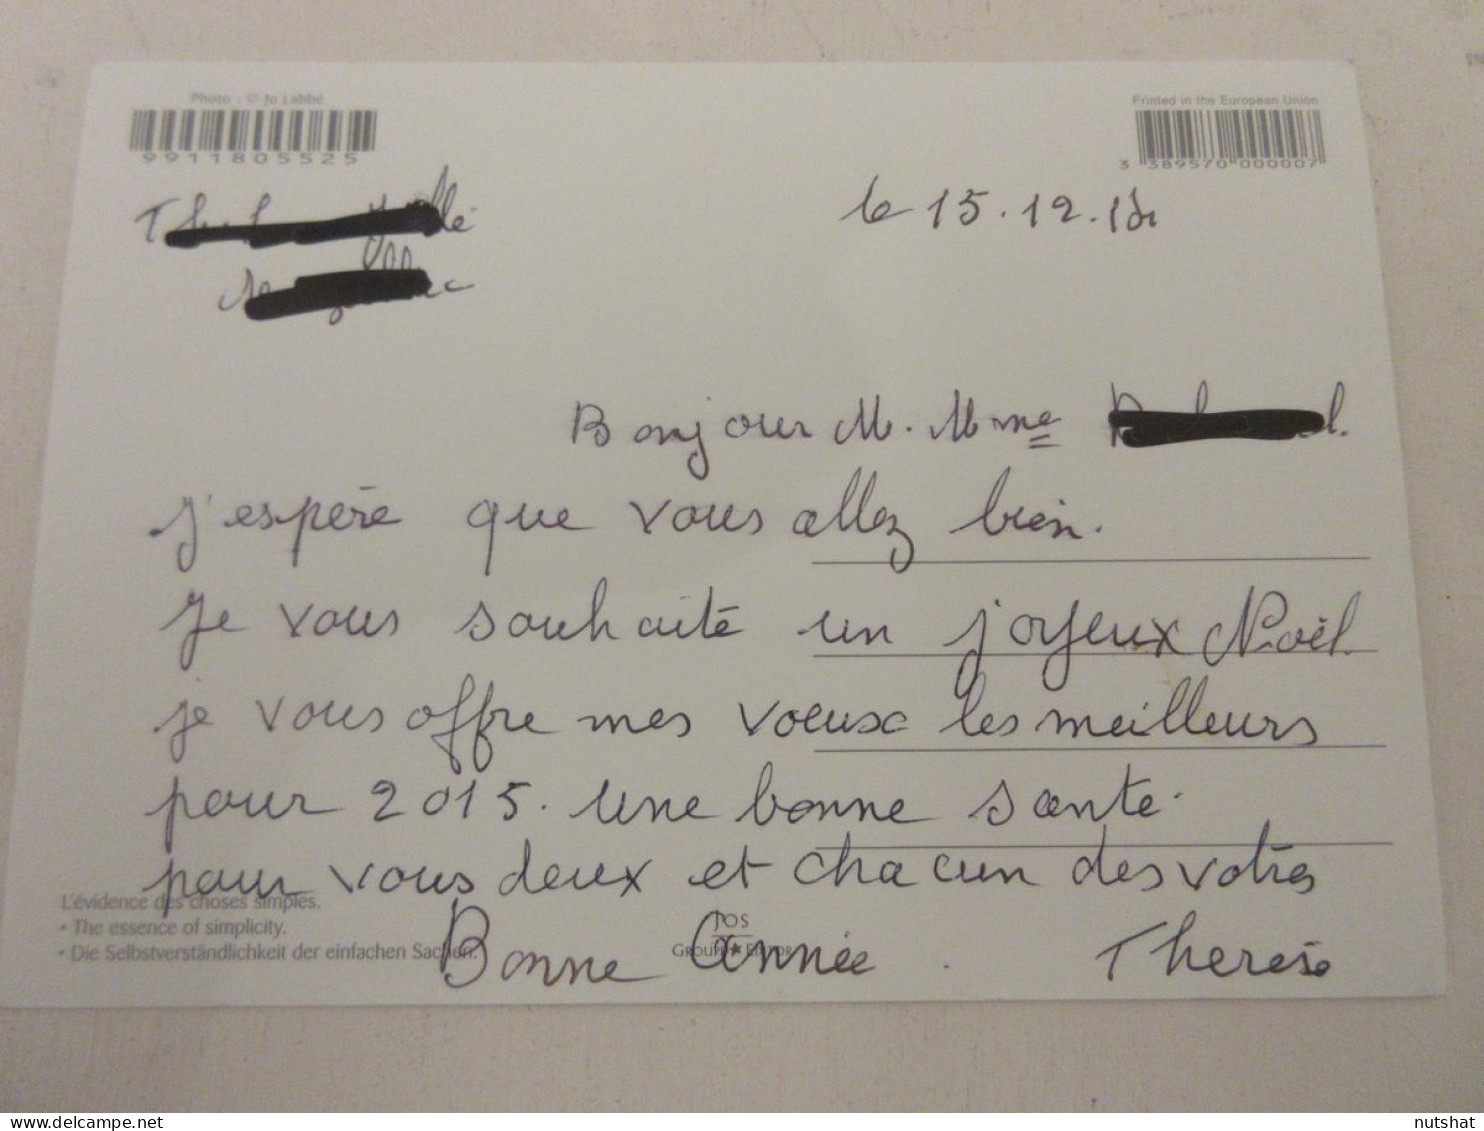 Photo : © Jo Labbé
Printed in the European Union
9911805525
3 389570 000007
le 15.12.14
Bonjour M. Mme
j'espère que vous allez bien.
Je vous souhaite un joyeux Noël.
je vous offre mes voeux les meilleurs
pour 2015. une bonne sante.
pour vous deux et chacun des votres
L'évidence des choses simples.
• The essence of simplicity.
• Die Selbstverständlichkeit der einfachen Sachen.
JOS
Bonne Année. Therese
delcampe.net
nutshat